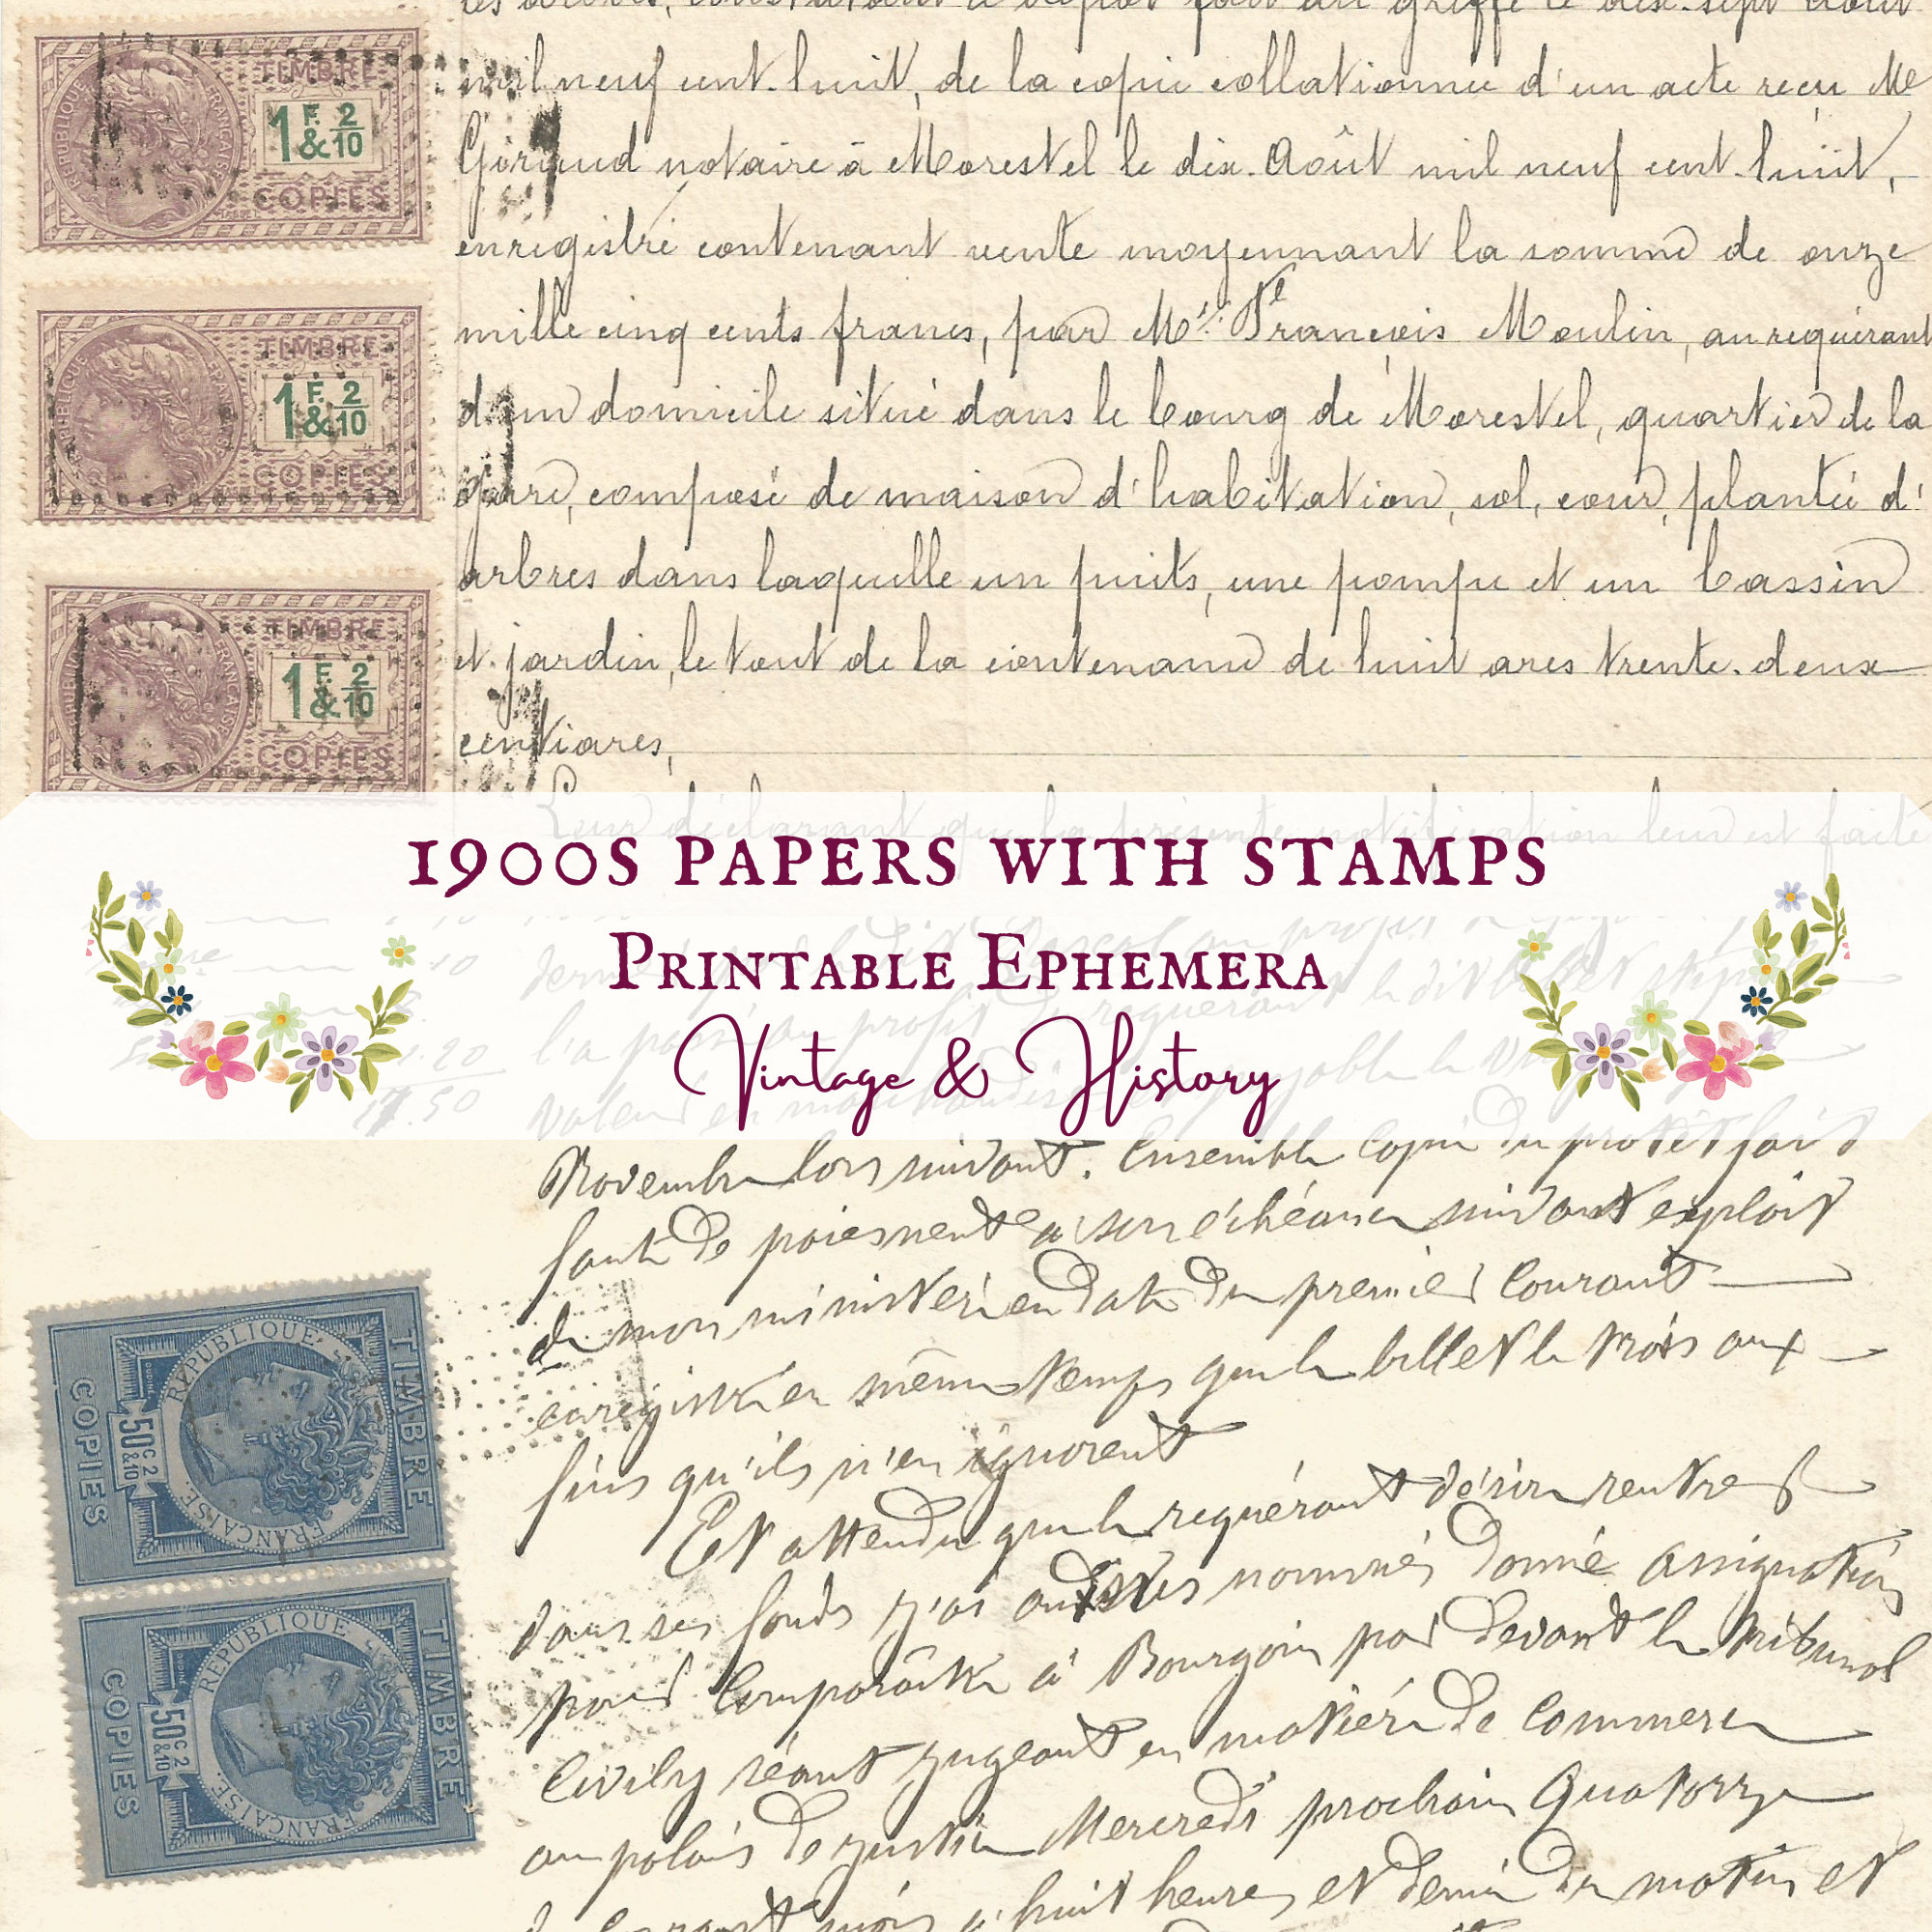 TIMBRE
1 F. & 2/10
COPIES
RÉPUBLIQUE FRANÇAISE
mil neuf cent huit, de la copie collationnée d'un acte reçu Me
notaire à Morestel le dix Août mil neuf cent huit,
enregistré contenant vente moyennant la somme de onze
mille cinq cents francs, par Mr François Moulin, au requérant
d'un domicile situé dans le bourg de Morestel, quartier de la
gare, composé de maison d'habitation, sol, cour, plantée d'
arbres dans laquelle un puits, une pompe et un bassin
et jardin, le tout de la contenance de huit ares trente-deux
centiares,
TIMBRE
1 F. & 2/10
COPIES
RÉPUBLIQUE FRANÇAISE
TIMBRE
1 F. & 2/10
COPIES
FRANÇAISE
Leur déclarant que la présente notification leur est faite
1900S PAPERS WITH STAMPS
PRINTABLE EPHEMERA
Vintage & History
Novembre lors suivant. Ensemble copie du protêt fait
faute de paiement à son échéance suivant exploit
de mon ministère en date du premier courant
enregistré en même temps que le billet le trois aux
fins qu'ils n'en ignorent
Et attendu que le requérant désire rentrer
dans ses fonds j'ai aux susnommés donné assignation
pour comparaître à Bourgoin par devant le tribunal
Civil y séant jugeant en matière de commerce
au palais de justice Mercredi prochain Quatorze
à huit heures et demie du matin et
RÉPUBLIQUE FRANÇAISE
TIMBRE
50c 2 & 10
COPIES
RÉPUBLIQUE FRANÇAISE
TIMBRE
50c 2 & 10
COPIES